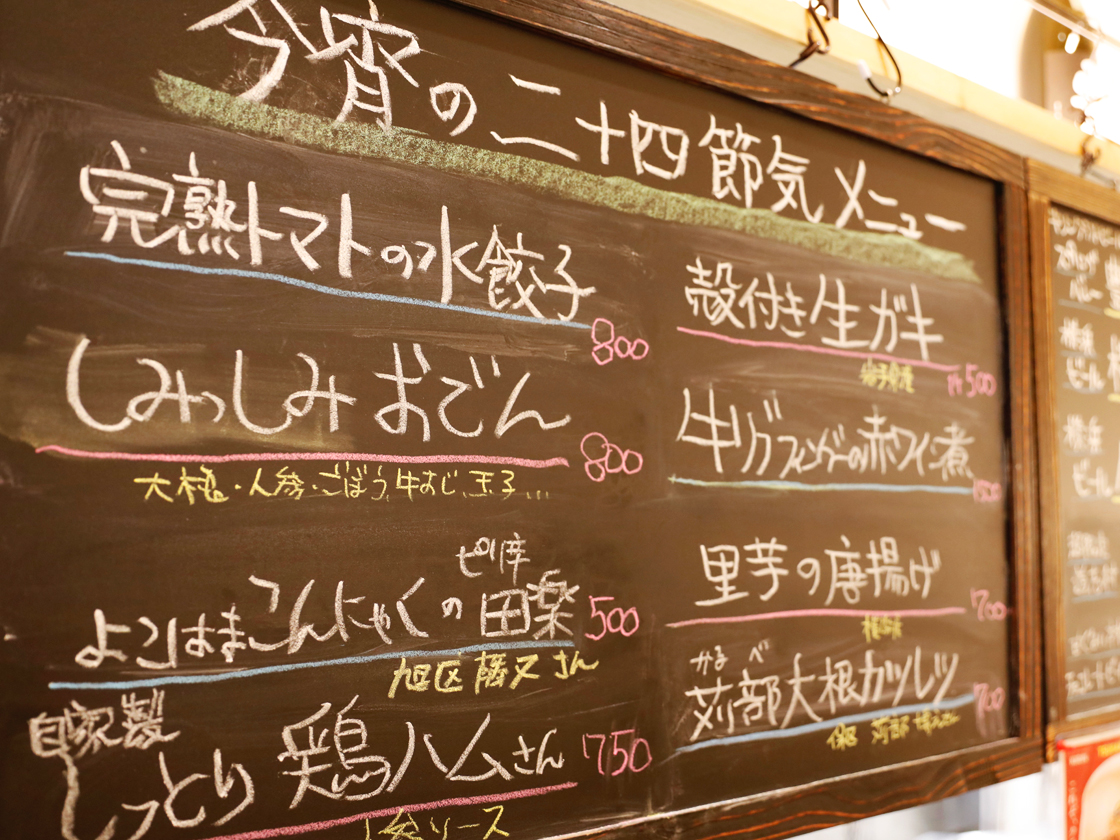 今宵の二十四節気メニュー
完熟トマトの水餃子
800
しみっしみ おでん
800
大根・人参・ごぼう、牛すじ、玉子...
ピリ辛
よこはまこんにゃくの田楽
500
旭区 藤又さん
自家製
しっとり 鶏ハムさん
750
ソース
殻付き生ガキ
500
牛リブフィンガーの赤ワイン煮
里芋の唐揚げ
700
かるべ
苅部大根カツレツ
700
苅部
ビール
ビール